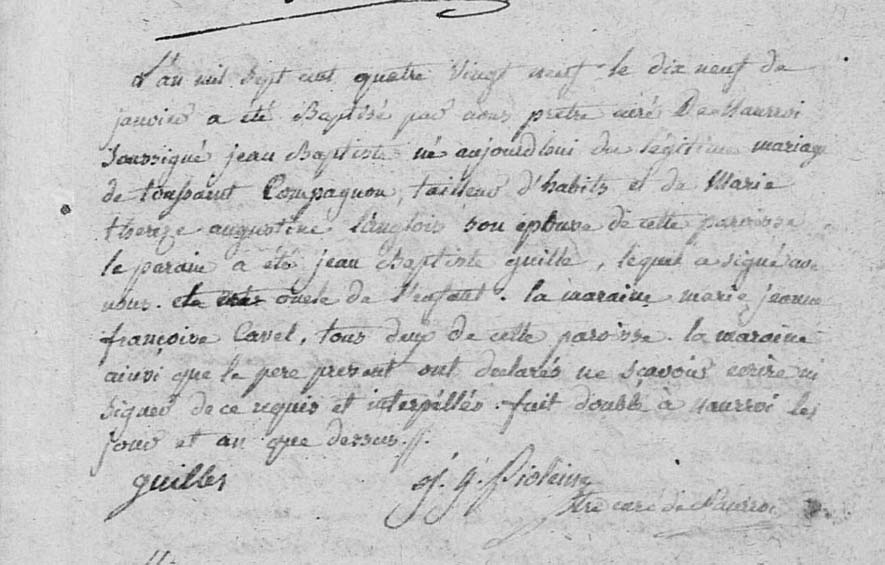 L'an mil sept cent quatre vingt neuf le dix neuf de
janvier a été Baptisé par nous prêtre curé De Naurroi
soussigné jean Baptiste né aujourdhui du légitime mariage
de toussaint Compagnon, tailleur d'habits et de Marie
thereze augustine langlois son epouse de cette paroisse
le parain a été jean Baptiste guille, lequel a signé avec
nous. oncle de l'enfant. la maraine marie jeanne
françoise Cavel, tous deux de cette paroisse. la maraine
ainsi que le pere present ont declarés ne scavoir ecrire ni
signer de ce requis et interpéllés. fait double à Naurroi les
jour et an que dessus.
guilles
curé de Naurroi